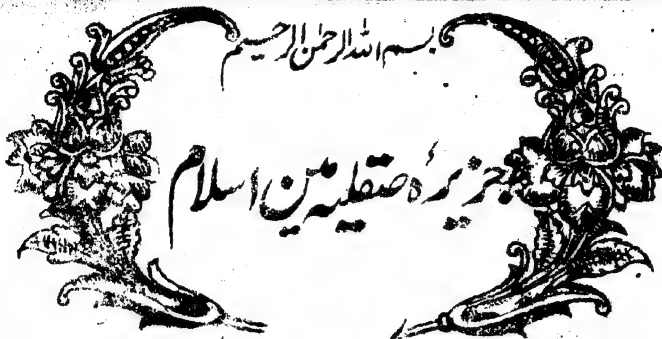 بسم اللہ الرحمٰن الرحیم
جزیرۂ صقلیہ مین اسلام